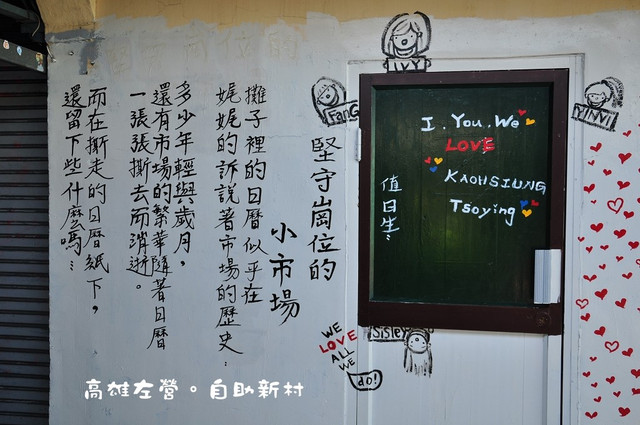 堅守崗位的
小市場
攤子裡的日曆似乎在
娓娓的訴說著市場的歷史：
多少年輕與歲月，
還有市場的繁華隨著日曆
一張張撕去而消逝。
而在撕走的日曆紙下，
還留下些什麼嗎…
IVY
FanG
YINVI
I.You.We
LOVE
KAOHSIUNG
Tsoying
值日生：
Sisley
WE
LOVE
ALL
WE
do!
高雄左營。自助新村